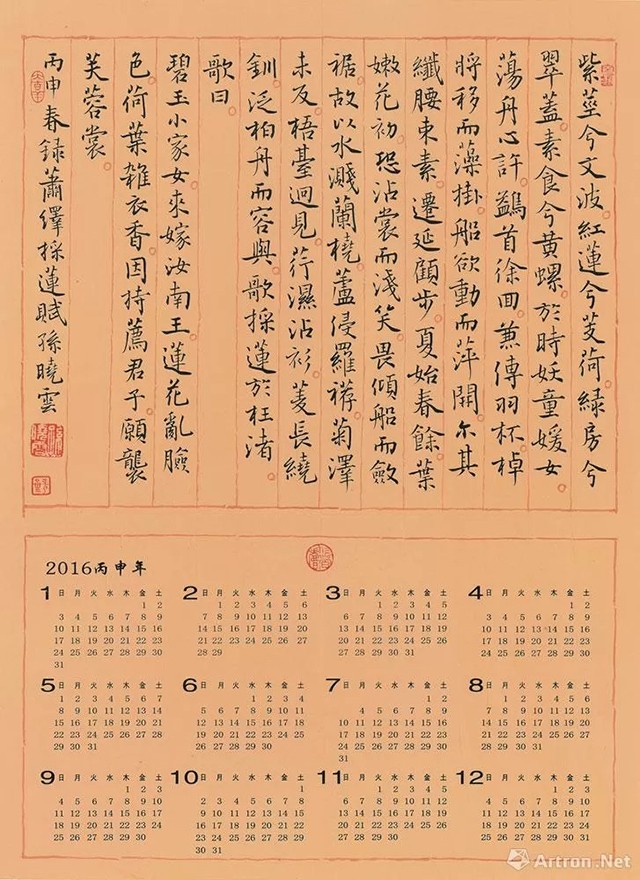 紫莖兮文波紅蓮兮芰荷綠房兮
翠蓋素食兮黃螺於時妖童媛女
蕩舟心許鷁首徐回兼傳羽杯棹
將移而藻掛船欲動而萍開尒其
纖腰束素遷延顧步夏始春餘葉
嫩花初恐沾裳而淺笑畏傾船而斂
裾故以水濺蘭橈蘆侵羅袸菊澤
未反梧臺迥見荇濕沾衫菱長繞
釧泛柏舟而容與歌採蓮於枉渚
歌曰
碧玉小家女來嫁汝南王蓮花亂臉
色荷葉雜衣香因持薦君子願襲
芙蓉裳
丙申春録蕭繹採蓮賦孫曉雲
2016丙申年
1 日 月 火 水 木 金 土
1 2
3 4 5 6 7 8 9
10 11 12 13 14 15 16
17 18 19 20 21 22 23
24 25 26 27 28 29 30
31
2 日 月 火 水 木 金 土
1 2 3 4 5 6
7 8 9 10 11 12 13
14 15 16 17 18 19 20
21 22 23 24 25 26 27
28 29
3 日 月 火 水 木 金 土
1 2 3 4 5
6 7 8 9 10 11 12
13 14 15 16 17 18 19
20 21 22 23 24 25 26
27 28 29 30 31
4 日 月 火 水 木 金 土
1 2
3 4 5 6 7 8 9
10 11 12 13 14 15 16
17 18 19 20 21 22 23
24 25 26 27 28 29 30
5 日 月 火 水 木 金 土
1 2 3 4 5 6 7
8 9 10 11 12 13 14
15 16 17 18 19 20 21
22 23 24 25 26 27 28
29 30 31
6 日 月 火 水 木 金 土
1 2 3 4
5 6 7 8 9 10 11
12 13 14 15 16 17 18
19 20 21 22 23 24 25
26 27 28 29 30
7 日 月 火 水 木 金 土
1 2
3 4 5 6 7 8 9
10 11 12 13 14 15 16
17 18 19 20 21 22 23
24 25 26 27 28 29 30
31
8 日 月 火 水 木 金 土
1 2 3 4 5 6
7 8 9 10 11 12 13
14 15 16 17 18 19 20
21 22 23 24 25 26 27
28 29 30 31
9 日 月 火 水 木 金 土
1 2 3
4 5 6 7 8 9 10
11 12 13 14 15 16 17
18 19 20 21 22 23 24
25 26 27 28 29 30
10 日 月 火 水 木 金 土
1
2 3 4 5 6 7 8
9 10 11 12 13 14 15
16 17 18 19 20 21 22
23 24 25 26 27 28 29
30 31
11 日 月 火 水 木 金 土
1 2 3 4 5
6 7 8 9 10 11 12
13 14 15 16 17 18 19
20 21 22 23 24 25 26
27 28 29 30
12 日 月 火 水 木 金 土
1 2 3
4 5 6 7 8 9 10
11 12 13 14 15 16 17
18 19 20 21 22 23 24
25 26 27 28 29 30 31
Artron.Net